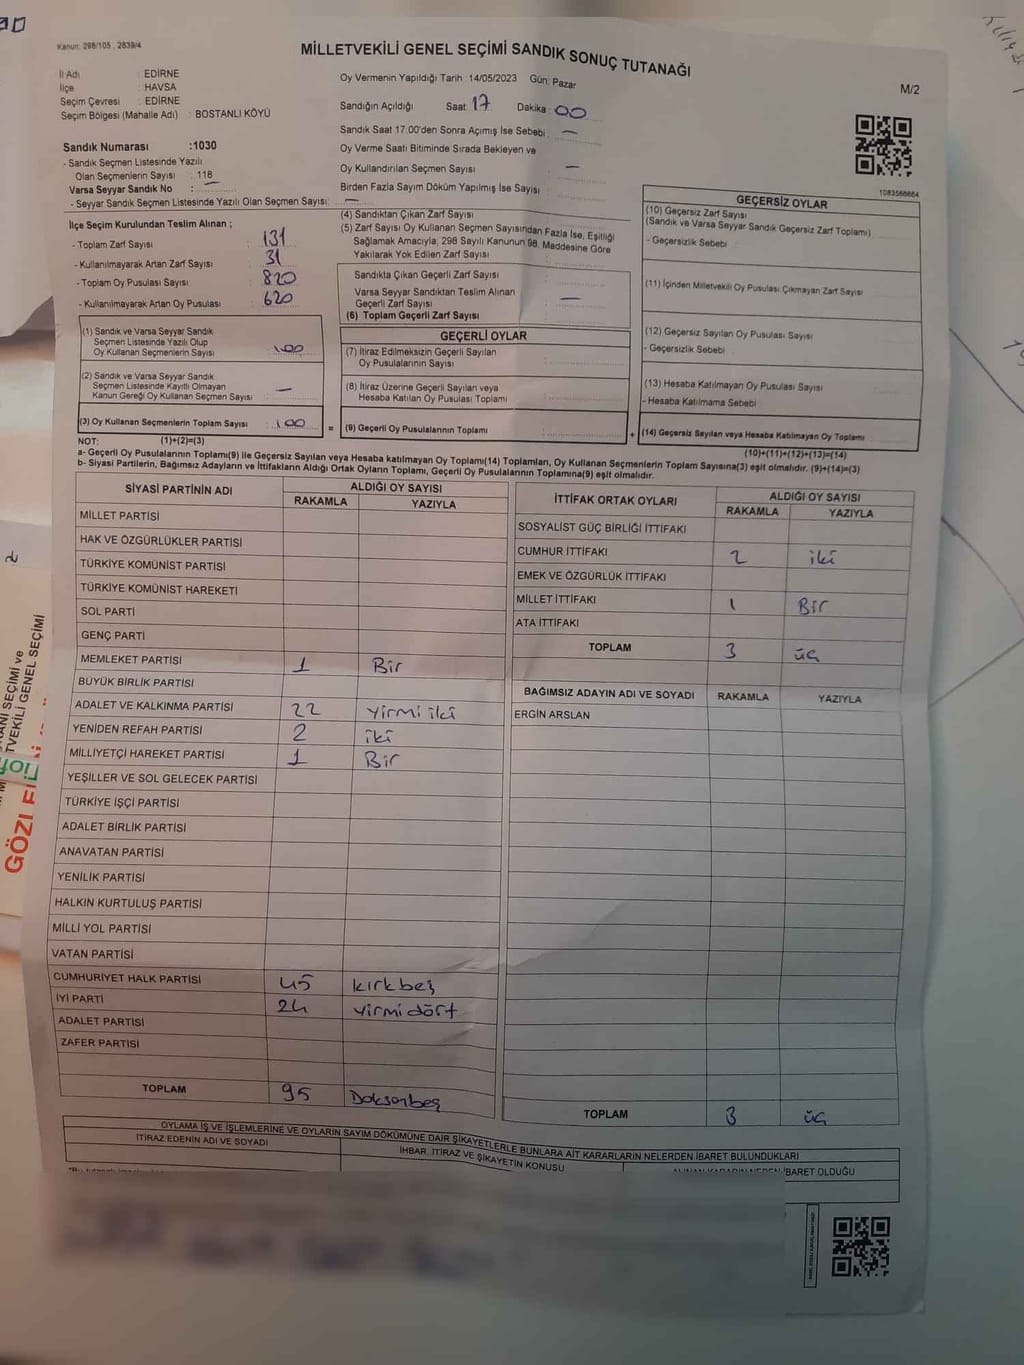 Kanun: 298/105, 2839/4
MİLLETVEKİLİ GENEL SEÇİMİ SANDIK SONUÇ TUTANAĞI
M/2
İl Adı : EDİRNE
İlçe : HAVSA
Seçim Çevresi : EDİRNE
Seçim Bölgesi (Mahalle Adı) : BOSTANLI KÖYÜ
Oy Vermenin Yapıldığı Tarih : 14/05/2023 Gün: Pazar
Sandığın Açıldığı Saat: 17 Dakika : 00
Sandık Saat 17:00'den Sonra Açımış İse Sebebi : —
Oy Verme Saati Bitiminde Sırada Bekleyen ve
Oy Kullandırılan Seçmen Sayısı : —
Birden Fazla Sayım Döküm Yapılmış İse Sayısı :
Sandık Numarası :1030
- Sandık Seçmen Listesinde Yazılı
Olan Seçmenlerin Sayısı : 118
Varsa Seyyar Sandık No : —
- Seyyar Sandık Seçmen Listesinde Yazılı Olan Seçmen Sayısı: —
İlçe Seçim Kurulundan Teslim Alınan ;
- Toplam Zarf Sayısı : 131
- Kullanılmayarak Artan Zarf Sayısı : 31
- Toplam Oy Pusulası Sayısı : 820
- Kullanılmayarak Artan Oy Pusulası : 620
(1) Sandık ve Varsa Seyyar Sandık
Seçmen Listesinde Yazılı Olup
Oy Kullanan Seçmenlerin Sayısı : 100
(2) Sandık ve Varsa Seyyar Sandık
Seçmen Listesinde Kayıtlı Olmayan
Kanun Gereği Oy Kullanan Seçmen Sayısı : —
(3) Oy Kullanan Seçmenlerin Toplam Sayısı : 100
(4) Sandıktan Çıkan Zarf Sayısı
(5) Zarf Sayısı Oy Kullanan Seçmen Sayısından Fazla İse, Eşitliği
Sağlamak Amacıyla, 298 Sayılı Kanunun 98. Maddesine Göre
Yakılarak Yok Edilen Zarf Sayısı :
Sandıkta Çıkan Geçerli Zarf Sayısı :
Varsa Seyyar Sandıktan Teslim Alınan
Geçerli Zarf Sayısı : —
(6) Toplam Geçerli Zarf Sayısı :
GEÇERLİ OYLAR
(7) İtiraz Edilmeksizin Geçerli Sayılan
Oy Pusulalarının Sayısı :
(8) İtiraz Üzerine Geçerli Sayılan veya
Hesaba Katılan Oy Pusulası Toplamı :
= (9) Geçerli Oy Pusulalarının Toplamı :
1083568664
GEÇERSİZ OYLAR
(10) Geçersiz Zarf Sayısı
(Sandık ve Varsa Seyyar Sandık Geçersiz Zarf Toplamı) :
- Geçersizlik Sebebi :
(11) İçinden Milletvekili Oy Pusulası Çıkmayan Zarf Sayısı :
(12) Geçersiz Sayılan Oy Pusulası Sayısı :
- Geçersizlik Sebebi :
(13) Hesaba Katılmayan Oy Pusulası Sayısı :
- Hesaba Katılmama Sebebi :
+ (14) Geçersiz Sayılan veya Hesaba Katılmayan Oy Toplamı :
NOT: (1)+(2)=(3) (10)+(11)+(12)+(13)=(14)
a- Geçerli Oy Pusulalarının Toplamı(9) ile Geçersiz Sayılan veya Hesaba katılmayan Oy Toplamı(14) Toplamları, Oy Kullanan Seçmenlerin Toplam Sayısına(3) eşit olmalıdır. (9)+(14)=(3)
b- Siyasi Partilerin, Bağımsız Adayların ve İttifakların Aldığı Ortak Oyların Toplamı, Geçerli Oy Pusulalarının Toplamına(9) eşit olmalıdır.
SİYASİ PARTİNİN ADI ALDIĞI OY SAYISI
RAKAMLA YAZIYLA
MİLLET PARTİSİ
HAK VE ÖZGÜRLÜKLER PARTİSİ
TÜRKİYE KOMÜNİST PARTİSİ
TÜRKİYE KOMÜNİST HAREKETİ
SOL PARTİ
GENÇ PARTİ
MEMLEKET PARTİSİ 1 Bir
BÜYÜK BİRLİK PARTİSİ
ADALET VE KALKINMA PARTİSİ 22 yirmi iki
YENİDEN REFAH PARTİSİ 2 iki
MİLLİYETÇİ HAREKET PARTİSİ 1 Bir
YEŞİLLER VE SOL GELECEK PARTİSİ
TÜRKİYE İŞÇİ PARTİSİ
ADALET BİRLİK PARTİSİ
ANAVATAN PARTİSİ
YENİLİK PARTİSİ
HALKIN KURTULUŞ PARTİSİ
MİLLİ YOL PARTİSİ
VATAN PARTİSİ
CUMHURİYET HALK PARTİSİ 45 kırkbeş
İYİ PARTİ 24 yirmidört
ADALET PARTİSİ
ZAFER PARTİSİ
TOPLAM 95 Doksanbeş
İTTİFAK ORTAK OYLARI ALDIĞI OY SAYISI
RAKAMLA YAZIYLA
SOSYALİST GÜÇ BİRLİĞİ İTTİFAKI
CUMHUR İTTİFAKI 2 iki
EMEK VE ÖZGÜRLÜK İTTİFAKI
MİLLET İTTİFAKI 1 Bir
ATA İTTİFAKI
TOPLAM 3 üç
BAĞIMSIZ ADAYIN ADI VE SOYADI RAKAMLA YAZIYLA
ERGİN ARSLAN
TOPLAM 3 üç
OYLAMA İŞ VE İŞLEMLERİNE VE OYLARIN SAYIM DÖKÜMÜNE DAİR ŞİKAYETLERLE BUNLARA AİT KARARLARIN NELERDEN İBARET BULUNDUKLARI
İTİRAZ EDENİN ADI VE SOYADI
İHBAR, İTİRAZ VE ŞİKAYETİN KONUSU
ALINAN KARARIN NEDEN İBARET OLDUĞU
ANI SEÇİMİ ve
TVEKİLİ GENEL SEÇİMİ
GÖZ